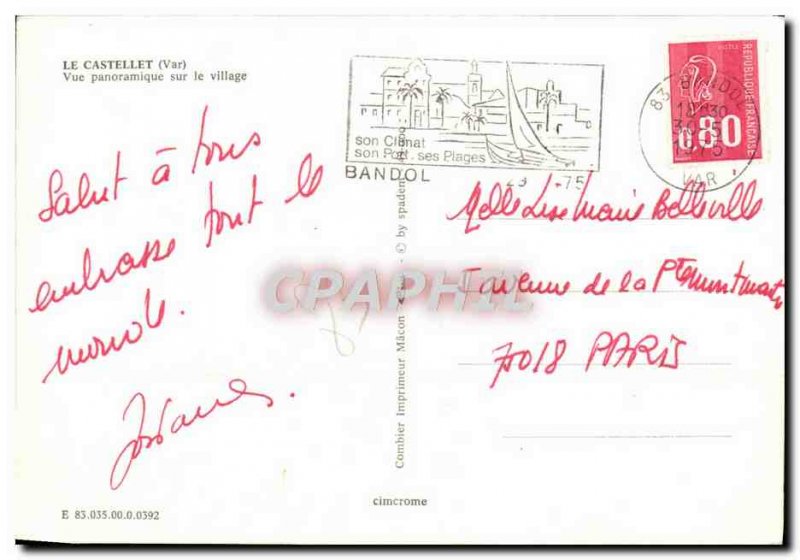 LE CASTELLET (Var)
Vue panoramique sur le village
son Climat
son Port. ses Plages
BANDOL
83 BANDOL
18H30
1975
VAR
REPUBLIQUE FRANÇAISE
0,80
Salut à tous
embrasse tout le
monde.
Josiane.
Melle Lise Marie Belleville
avenue de la Pte Montmartre
75018 PARIS
CPARPHIL
Combier Imprimeur Mâcon
© by spadem
cimcrome
E 83.035.00.0.0392